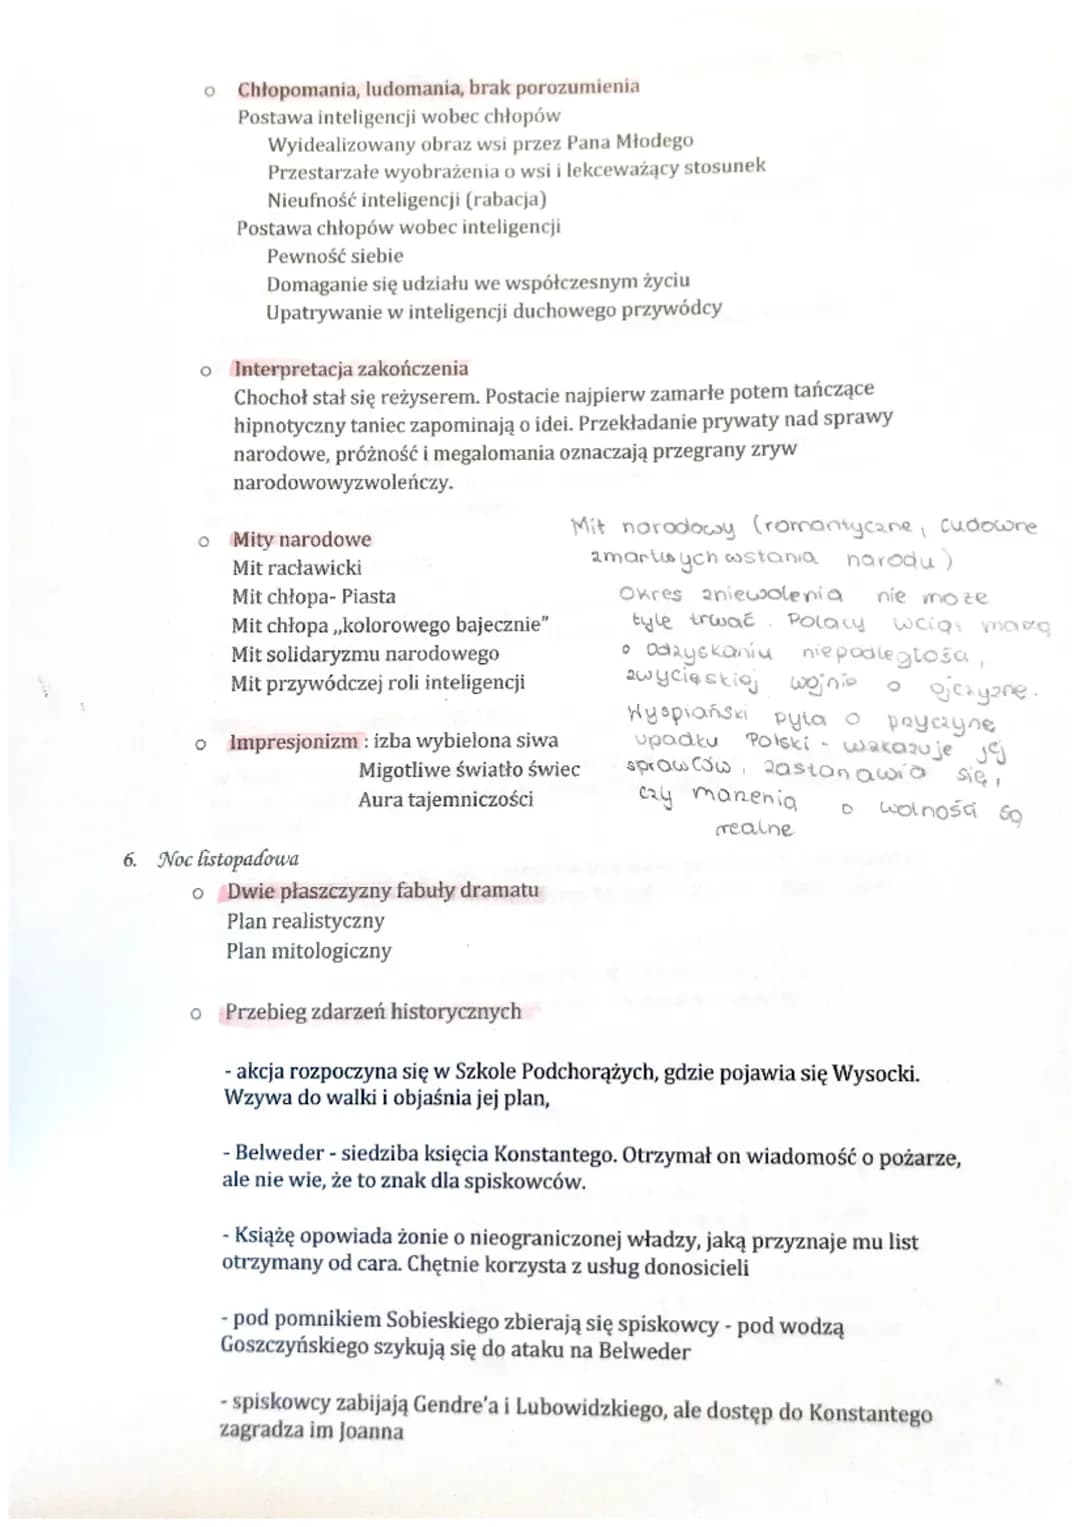 o Chłopomania, ludomania, brak porozumienia
Postawa inteligencji wobec chłopów
Wyidealizowany obraz wsi przez Pana Młodego
Przestarzałe wyobrażenia o wsi i lekceważący stosunek
Nieufność inteligencji (rabacja)
Postawa chłopów wobec inteligencji
Pewność siebie
Domaganie się udziału we współczesnym życiu
Upatrywanie w inteligencji duchowego przywódcy
o Interpretacja zakończenia
Chochoł stał się reżyserem. Postacie najpierw zamarłe potem tańczące
hipnotyczny taniec zapominają o idei. Przekładanie prywaty nad sprawy
narodowe, próżność i megalomania oznaczają przegrany zryw
narodowowyzwoleńczy.
o Mity narodowe
Mit racławicki
Mit chłopa- Piasta
Mit chłopa „kolorowego bajecznie"
Mit solidaryzmu narodowego
Mit przywódczej roli inteligencji
Mit narodowy (romantyczne, cudowne
zmartwychwstania narodu)
Okres zniewolenia nie może
tyle trwać. Polacy wciąż marzą
o odzyskaniu niepodległości,
zwycięskiej wojnie o ojczyznę.
Wyspiański pyta o przyczynę
upadku Polski - wskazuje jej
sprawców, zastanawia się,
czy marzenia o wolności są
realne
o Impresjonizm : izba wybielona siwa
Migotliwe światło świec
Aura tajemniczości
6. Noc listopadowa
o Dwie płaszczyzny fabuły dramatu
Plan realistyczny
Plan mitologiczny
o Przebieg zdarzeń historycznych
- akcja rozpoczyna się w Szkole Podchorążych, gdzie pojawia się Wysocki.
Wzywa do walki i objaśnia jej plan,
- Belweder - siedziba księcia Konstantego. Otrzymał on wiadomość o pożarze,
ale nie wie, że to znak dla spiskowców.
- Książę opowiada żonie o nieograniczonej władzy, jaką przyznaje mu list
otrzymany od cara. Chętnie korzysta z usług donosicieli
- pod pomnikiem Sobieskiego zbierają się spiskowcy - pod wodzą
Goszczyńskiego szykują się do ataku na Belweder
- spiskowcy zabijają Gendre'a i Lubowidzkiego, ale dostęp do Konstantego
zagradza im Joanna